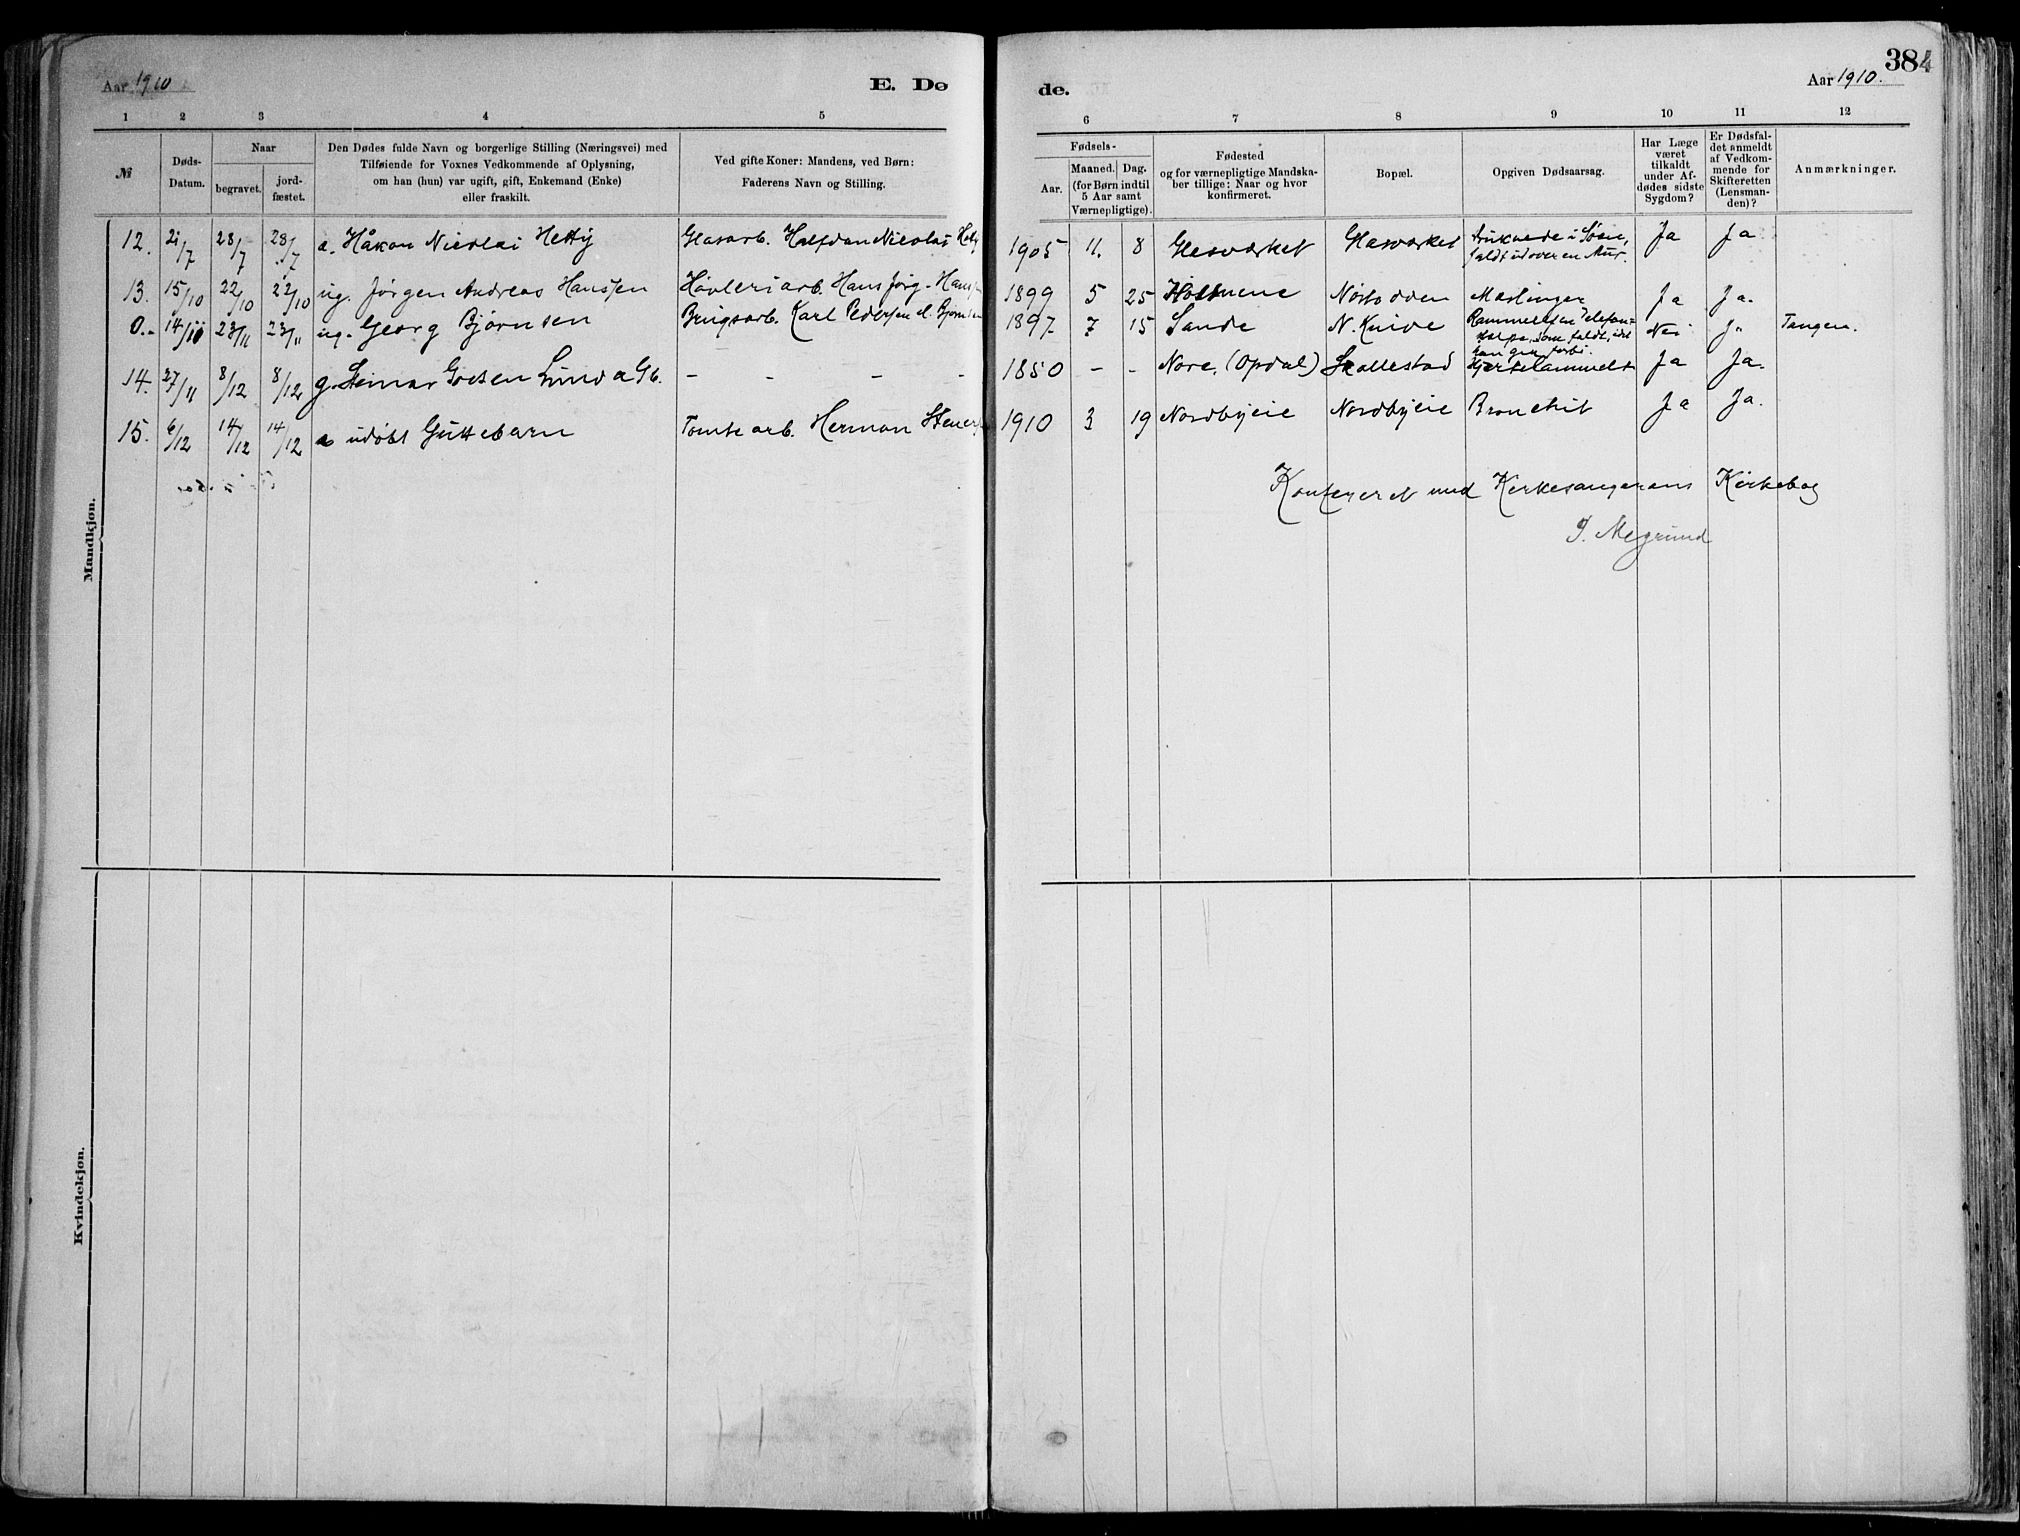 Aar 1910
E. Dø
de.
Aar 1910.
384
1 2 3 4 5
6 7 8 9 10 11 12
№
Døds-Datum.
Naar
begravet.
jordfæstet.
Den Dødes fulde Navn og borgerlige Stilling (Næringsvei) med
Tilføiende for Voxnes Vedkommende af Oplysning,
om han (hun) var ugift, gift, Enkemand (Enke)
eller fraskilt.
Ved gifte Koner: Mandens, ved Børn:
Faderens Navn og Stilling.
Fødsels-
Aar.
Maaned. Dag.
(for Børn indtil
5 Aar samt
Værnepligtige).
Fødested
og for værnepligtige Mandska-
ber tillige: Naar og hvor
konfirmeret.
Bopæl.
Opgiven Dødsaarsag.
Har Læge
været
tilkaldt
under Af-
dødes sidste
Sygdom?
Er Dødsfal-
det anmeldt
af Vedkom-
mende for
Skifteretten
(Lensman-
den)?
Anmærkninger.
Mandkjøn.
12. 21/7 28/7 28/7 a. Håkon Nicolai Hetty Glasarb. Halfdan Nicolai Hetty 1905 11. 8 Glasværket Glasværket druknede i Søen, Ja Ja
faldt udover en Mur.
13. 15/10 22/10 22/10 ug. Jørgen Andreas Hanssen Høvleriarb. Hans Jørg. Hanssen 1899 5 25 Holtnene Nøstodden Mæslinger Ja Ja.
0.- 14/11 23/11 23/11 ug. Georg Bjørnsen Brugsarb. Karl Pedersen 1897. 7 15 Sande N. Knive Rammet af en Telefon- Nei J" Tangen.
stolpe, som faldt, idet
han gik forbi.
14. 27/11 8/12 8/12 g. Steinar Lund a Gb. - - - - 1850 - - Nore. (Opdal) Skallestad Hjertelammelse Ja Ja.
15. 6/12 14/12 14/12 a udøbt Guttebarn Tomtearb. Herman 1910 3 19 Nordbyeie Nordbyeie Bronchit Ja Ja.
Konfereret med Kirkesangerens Kirkebog
Kvindekjøn.